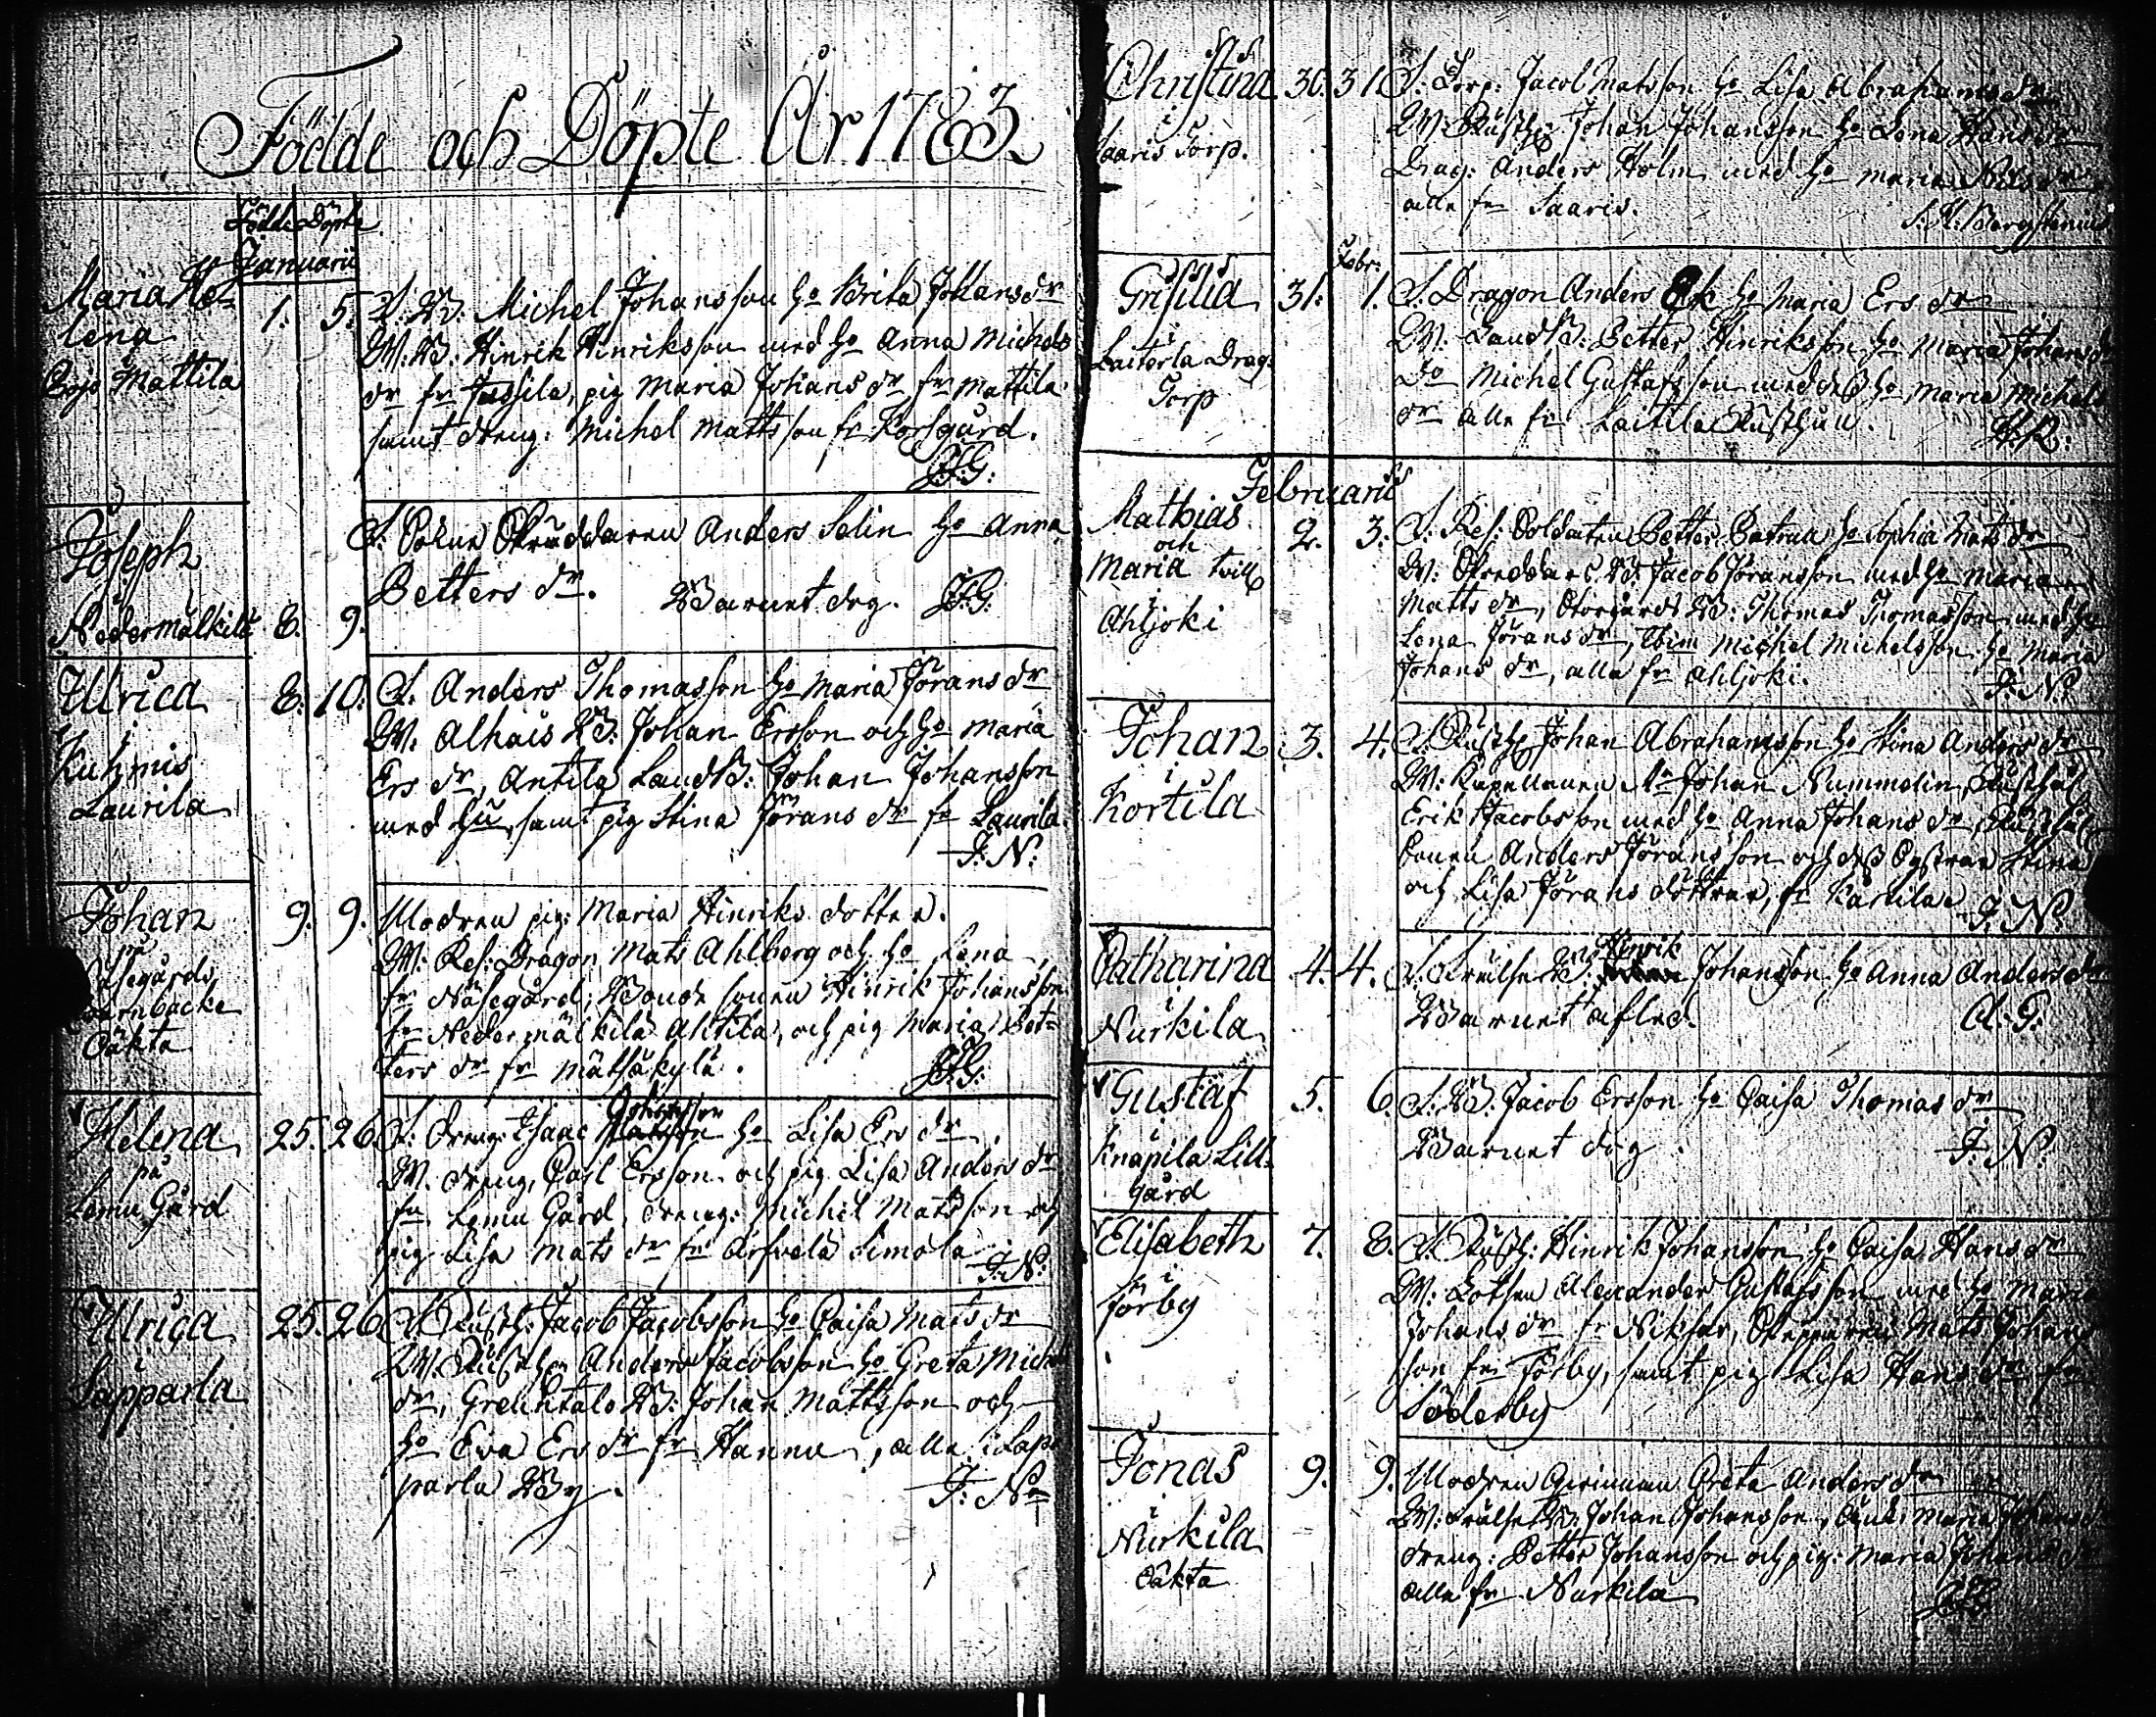 Födde och Döpte År 1783.
Födde Döpte
Januarii
Maria He-
lena
Mattila
1. 5. B. Michel Johansson ho Brita Johansdr
W: B: Hinrik Hinriksson med ho Anna Michels
dr fr Jussila, pig Maria Johans dr fr Mattila
samt dreng: Michel Mattsson fr Korsgård.
Joseph
Nedermälkilä 8. 9.
Anders Selin ho Anna
Petters dr. Barnet dog.
Ulrica
i
Kuhmis
Laurila
8. 10. Anders Thomasson ho Maria Jörans dr
W: Alhais B: Johan Ersson och ho Maria
Ers dr, Antila LandtB: Johan Johansson
med hu, samt pig Stina Jörans dr fr Laurila.
J: N:
Johan
på
Oäkta
9. 9. Modren pig: Maria Hinriks dotter.
W: Res: Dragon Mats Ahlberg och ho Lena
fr Näsegård; Bonde sonen Hinrik Johansson
fr Nedermälkilä Ahtila, och pig Maria Pet-
ters dr fr Mätsäkylä.
Helena
på
Lemu Gård
25. 26. Dreng: Isaac Johansson ho Lisa Ers dr
W. dreng, Carl Ersson och pig Lisa Anders dr
fr Lemu Gård, dreng: Michel Matsson och
pig Lisa Mats dr fr Arfvela Simola
J: N:
Ulrica
Lapparla
25. 26. Rusth: Jacob Jacobsson ho Caisa Mats dr
W. Rusth: Anders Jacobsson ho Greta Mich
dr, B: Johan Mattsson och
ho Eva Ers dr fr Hannu, alla i Lap-
parla By.
J: N:
Christina
i
Saaris Torp.
30. 31. Torp: Jacob Matsson ho Lisa Abrahams dr
W: Rusth: Johan Johansson ho Lena Hans dr
Drag: Anders Holm med ho Maria Nils dr
alla fr Saaris.
Bergstenius
Febr:
Grisilia
i
Drag:
Torp
31. 1. Dragon Anders Ek ho Maria Ers dr
W: LandtB: Petter Hinriksson ho Maria Johans dr
Do Michel Gustafsson med dess ho Maria Michels
dr alla fr Laitila Rusthåll.
Februarii
Mathias
och
Maria tvill
i
Ahljoki
2. 3. Res: Soldaten Petter Patrull ho Sophia Mats dr
W: B: Jacob Jöransson med ho Maria
Matts dr, Storgårds B: Thomas Thomasson med ho
Lena Jörans dr, Michel Michelsson ho Maria
Johans dr, alla fr Ahljoki.
J: N:
Johan
i
Kortila
3. 4. Rusth: Johan Abrahamsson ho Stina Anders dr
W: Kapellanen Mr Johan Nummelin, Rusthål
Erik Jacobsson med ho Anna Johans dr, Rusthål
sonen Anders Jöransson och dess Systrar Stina
och Lisa Jörans döttrar, fr Kartila.
J: N:
Catharina
i
Nurkila
4. 4. Frälse B: Hinrik Johansson ho Anna Anders dr
Barnet afled.
Gustaf
i
Knapila Lill-
gård
5. 6. B: Jacob Ersson ho Caisa Thomas dr
Barnet dog
J: N:
Elisabeth
i
Förby
7. 8. Rusth: Hinrik Johansson ho Caisa Hans dr
W: Lotsen Alexander Gustafsson med ho Maria
Johans dr fr Niksar, Mats Johans
son fr Förby, samt pig Lisa Hans dr fr
Söderby
Jonas
i
Nurkila
Oäkta
9. 9. Modren Greta Anders dr
W: Frälse B: Johan Johansson, Maria Johans dr
dreng: Petter Johansson och pig: Maria Johans dr
alla fr Nurkila